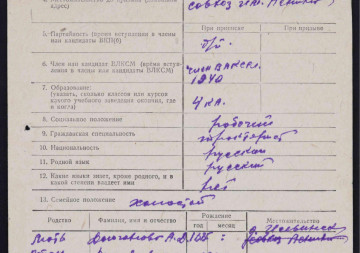 адрес)
совхоз им. Ленина
При призыве
При приписке
5. Партийность (время вступления в члены
или кандидаты ВКП(б)
б/п
6. Член или кандидат ВЛКСМ (время вступ-
ления в члены или кандидаты ВЛКСМ)
член ВЛКСМ
1940
7. Образование:
(указать, сколько классов или курсов
какого учебного заведения окончил, где
и когда)
4 кл.
8. Социальное положение
рабочий
9. Гражданская специальность
тракторист
10. Национальность
русский
11. Родной язык
русский
12. Какие языки знает, кроме родного, и в
какой степени владеет ими
нет
13. Семейное положение
холостой
Родство
Фамилия, имя и отчество
Рождение
год
месяц
Местожительство
мать
А.Д.
совхоз Ленина